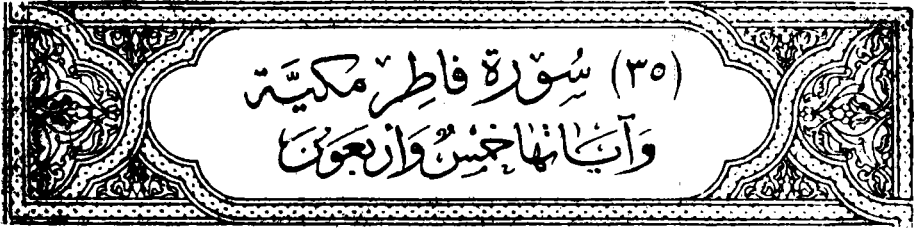 (٣٥) سُوْرَة فاطِرْ مَكيَّة
وَآيَاتهَا خَمْسٌ وَأَرْبَعَونَ